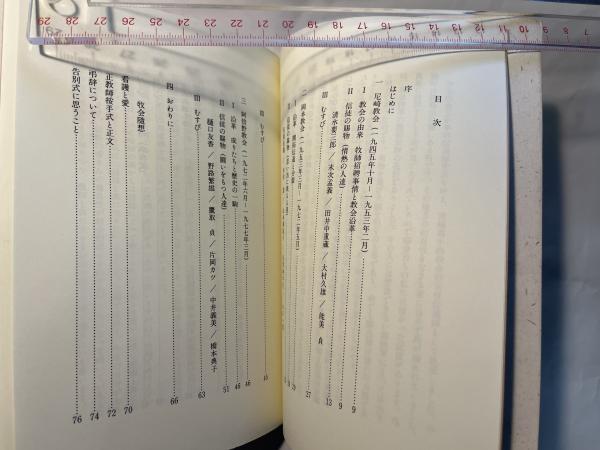 目次
序
はじめに
一 尼崎教会（一九四五年十月―一九五三年二月）……9
Ⅰ 教会の由来 牧師招聘事情と教会沿革……9
Ⅱ 信徒の賜物（情熱の人達）……13
清水要三郎／末次孟義／田井中重蔵／大村久雄／能美 貞
Ⅲ むすび……27
二 岡本教会（一九五三年二月―一九七二年五月）
Ⅲ むすび……45
三 阿倍野教会（一九七二年六月―一九七七年三月）……46
Ⅰ 沿革 成り立ちと歴史の一駒……46
Ⅱ 信徒の賜物（闘いをもつ人達）……51
樋口友香／野路繁雄／鷹取 貞／片岡カツ／中井義美／橋本典子
Ⅲ むすび……63
四 おわりに……66
牧会随想
看護と愛……70
正教師按手式と正文……72
弔辞について……74
告別式に思うこと……76
29 28 27 26 25 24 23 22 21 20 19 18 17 16 15 14 13 12 11 10 9 8 7